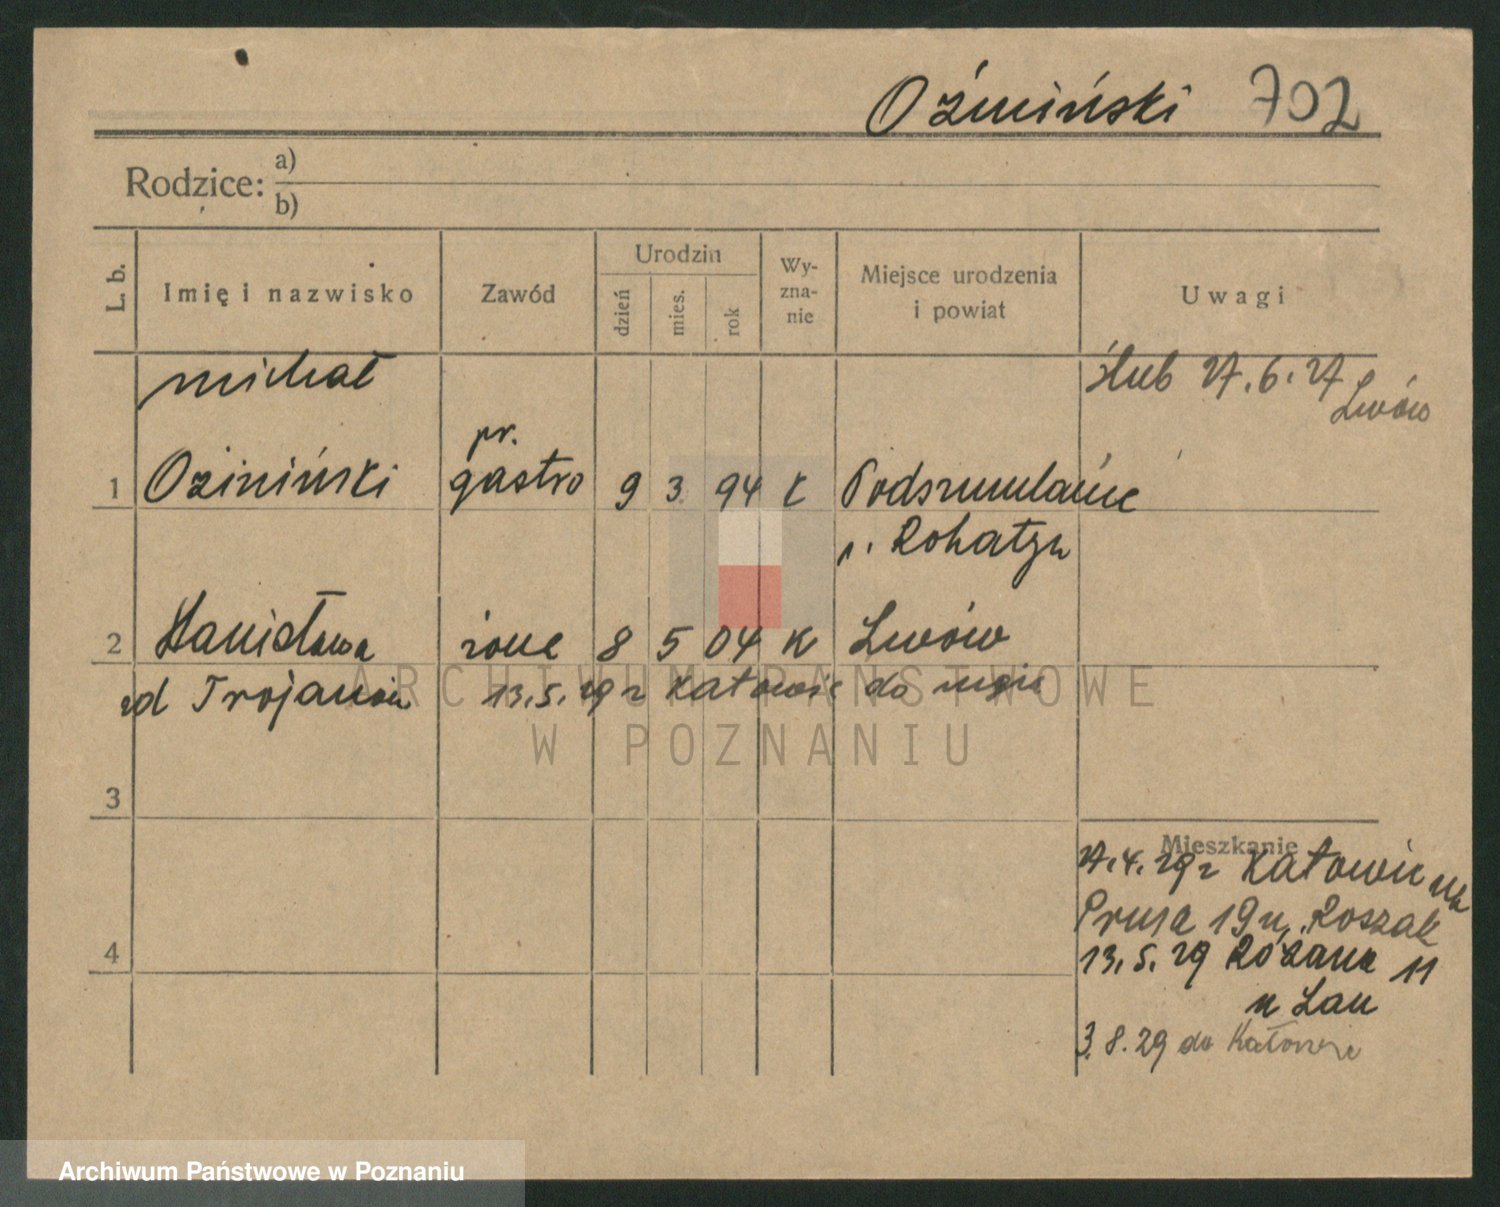 Oźmiński 702
Rodzice: a)
b)
L. b.
Imię i nazwisko
Zawód
Urodzin
dzień
mies.
rok
Wy-
zna-
nie
Miejsce urodzenia
i powiat
Uwagi
Michał
ślub 27.6.27
Lwów
pr.
1 Oźmiński gastro 9 3 94 k Podszumlańce
p. Rohatyn
2 Stanisława żona 8 5 04 k Lwów
zd Trojanów 13.5.29 z Katowic do męża
3
Mieszkanie
27.4.29 z Katowic na
Prusa 19 u. Roszak
4
13.5.29 Różana 11
u Lau
3.8.29 do Katowic
ARCHIWUM PAŃSTWOWE
W POZNANIU
Archiwum Państwowe w Poznaniu